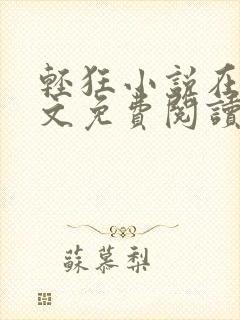 輕狂小說在
文免費閱讀
蘇慕梨